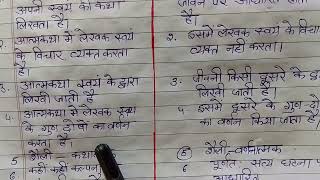 अपनी स्वयं की कथा
लिखता है।
2. आत्मकथा में लेखक स्वयं
के विचार व्यक्त करता
है।
3. आत्मकथा स्वयं के द्वारा
लिखी जाती है
4. आत्मकथा में लेखक स्वयं
के गुण दोषों का वर्णन
करता है।
5 शैली-
कहीं कहीं कल्पना
जीवन पर आधारित होती
है।
2. इसमें लेखक स्वयं के विचार
व्यक्त नहीं करता।
3. जीवनी किसी दूसरे के द्वारा
लिखी जाती है।
4 इसमें दूसरे के गुण दोषों
का वर्णन किया जाता है।
5 शैली-वर्णनात्मक
पूर्णतः सत्य घटना पर
आधारित